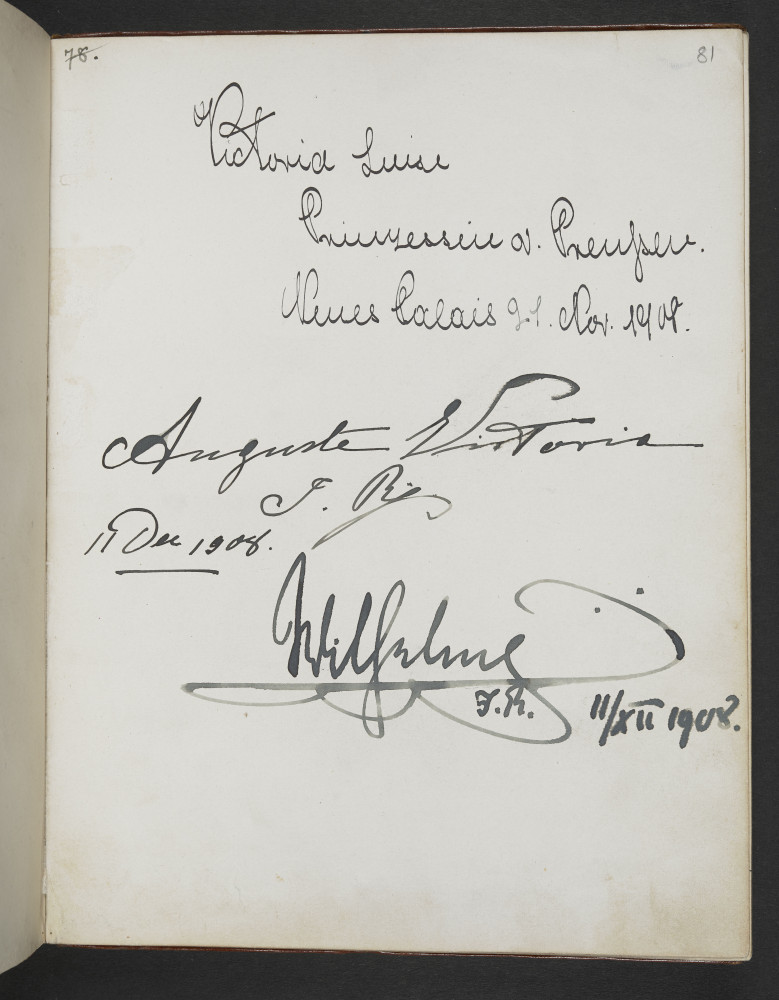 78.
81
Victoria Luise
Prinzessin v. Preußen.
Neues Palais 21. Nov. 1908.
Auguste Victoria
I. R.
11 Dec 1908.
Wilhelm
I.R. 11/XII 1908.